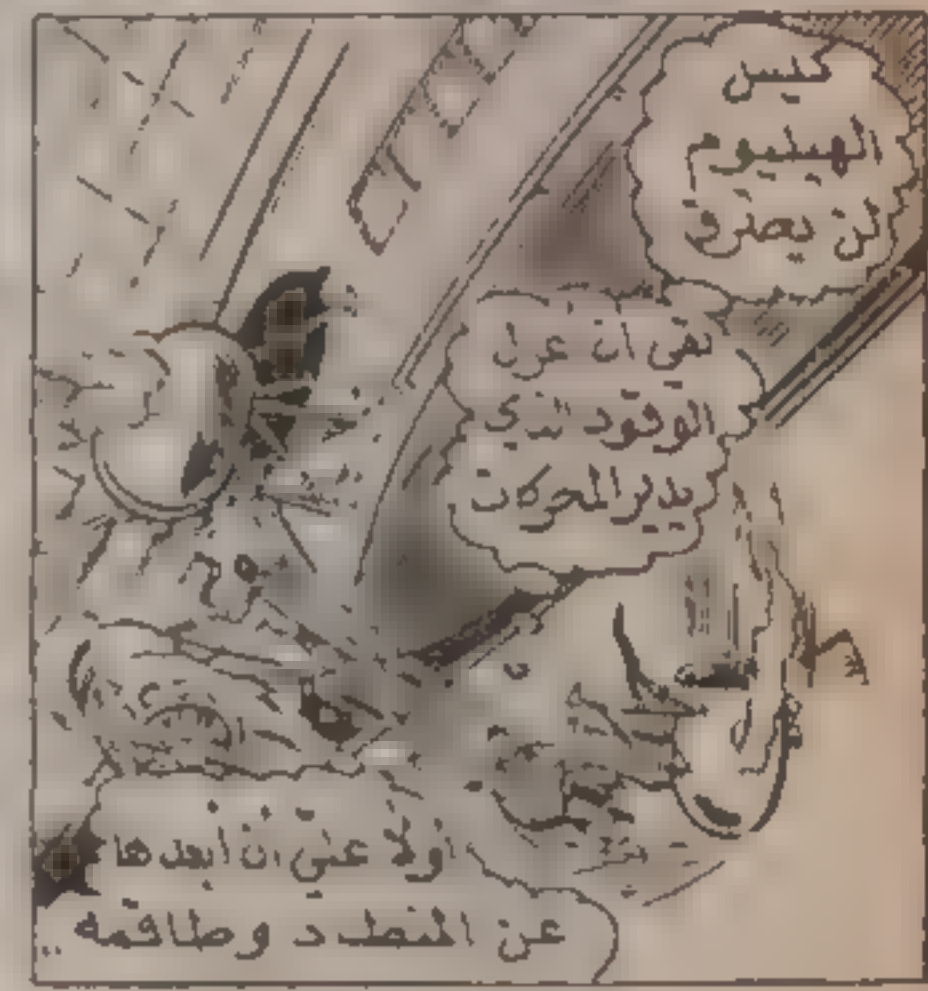 كيس
الهيليوم
لن يحترق
بقي أن أعزل
الوقود الذي
يدير المحركات
أولا علي أن أبعدها
عن المنطاد وطاقمه ..